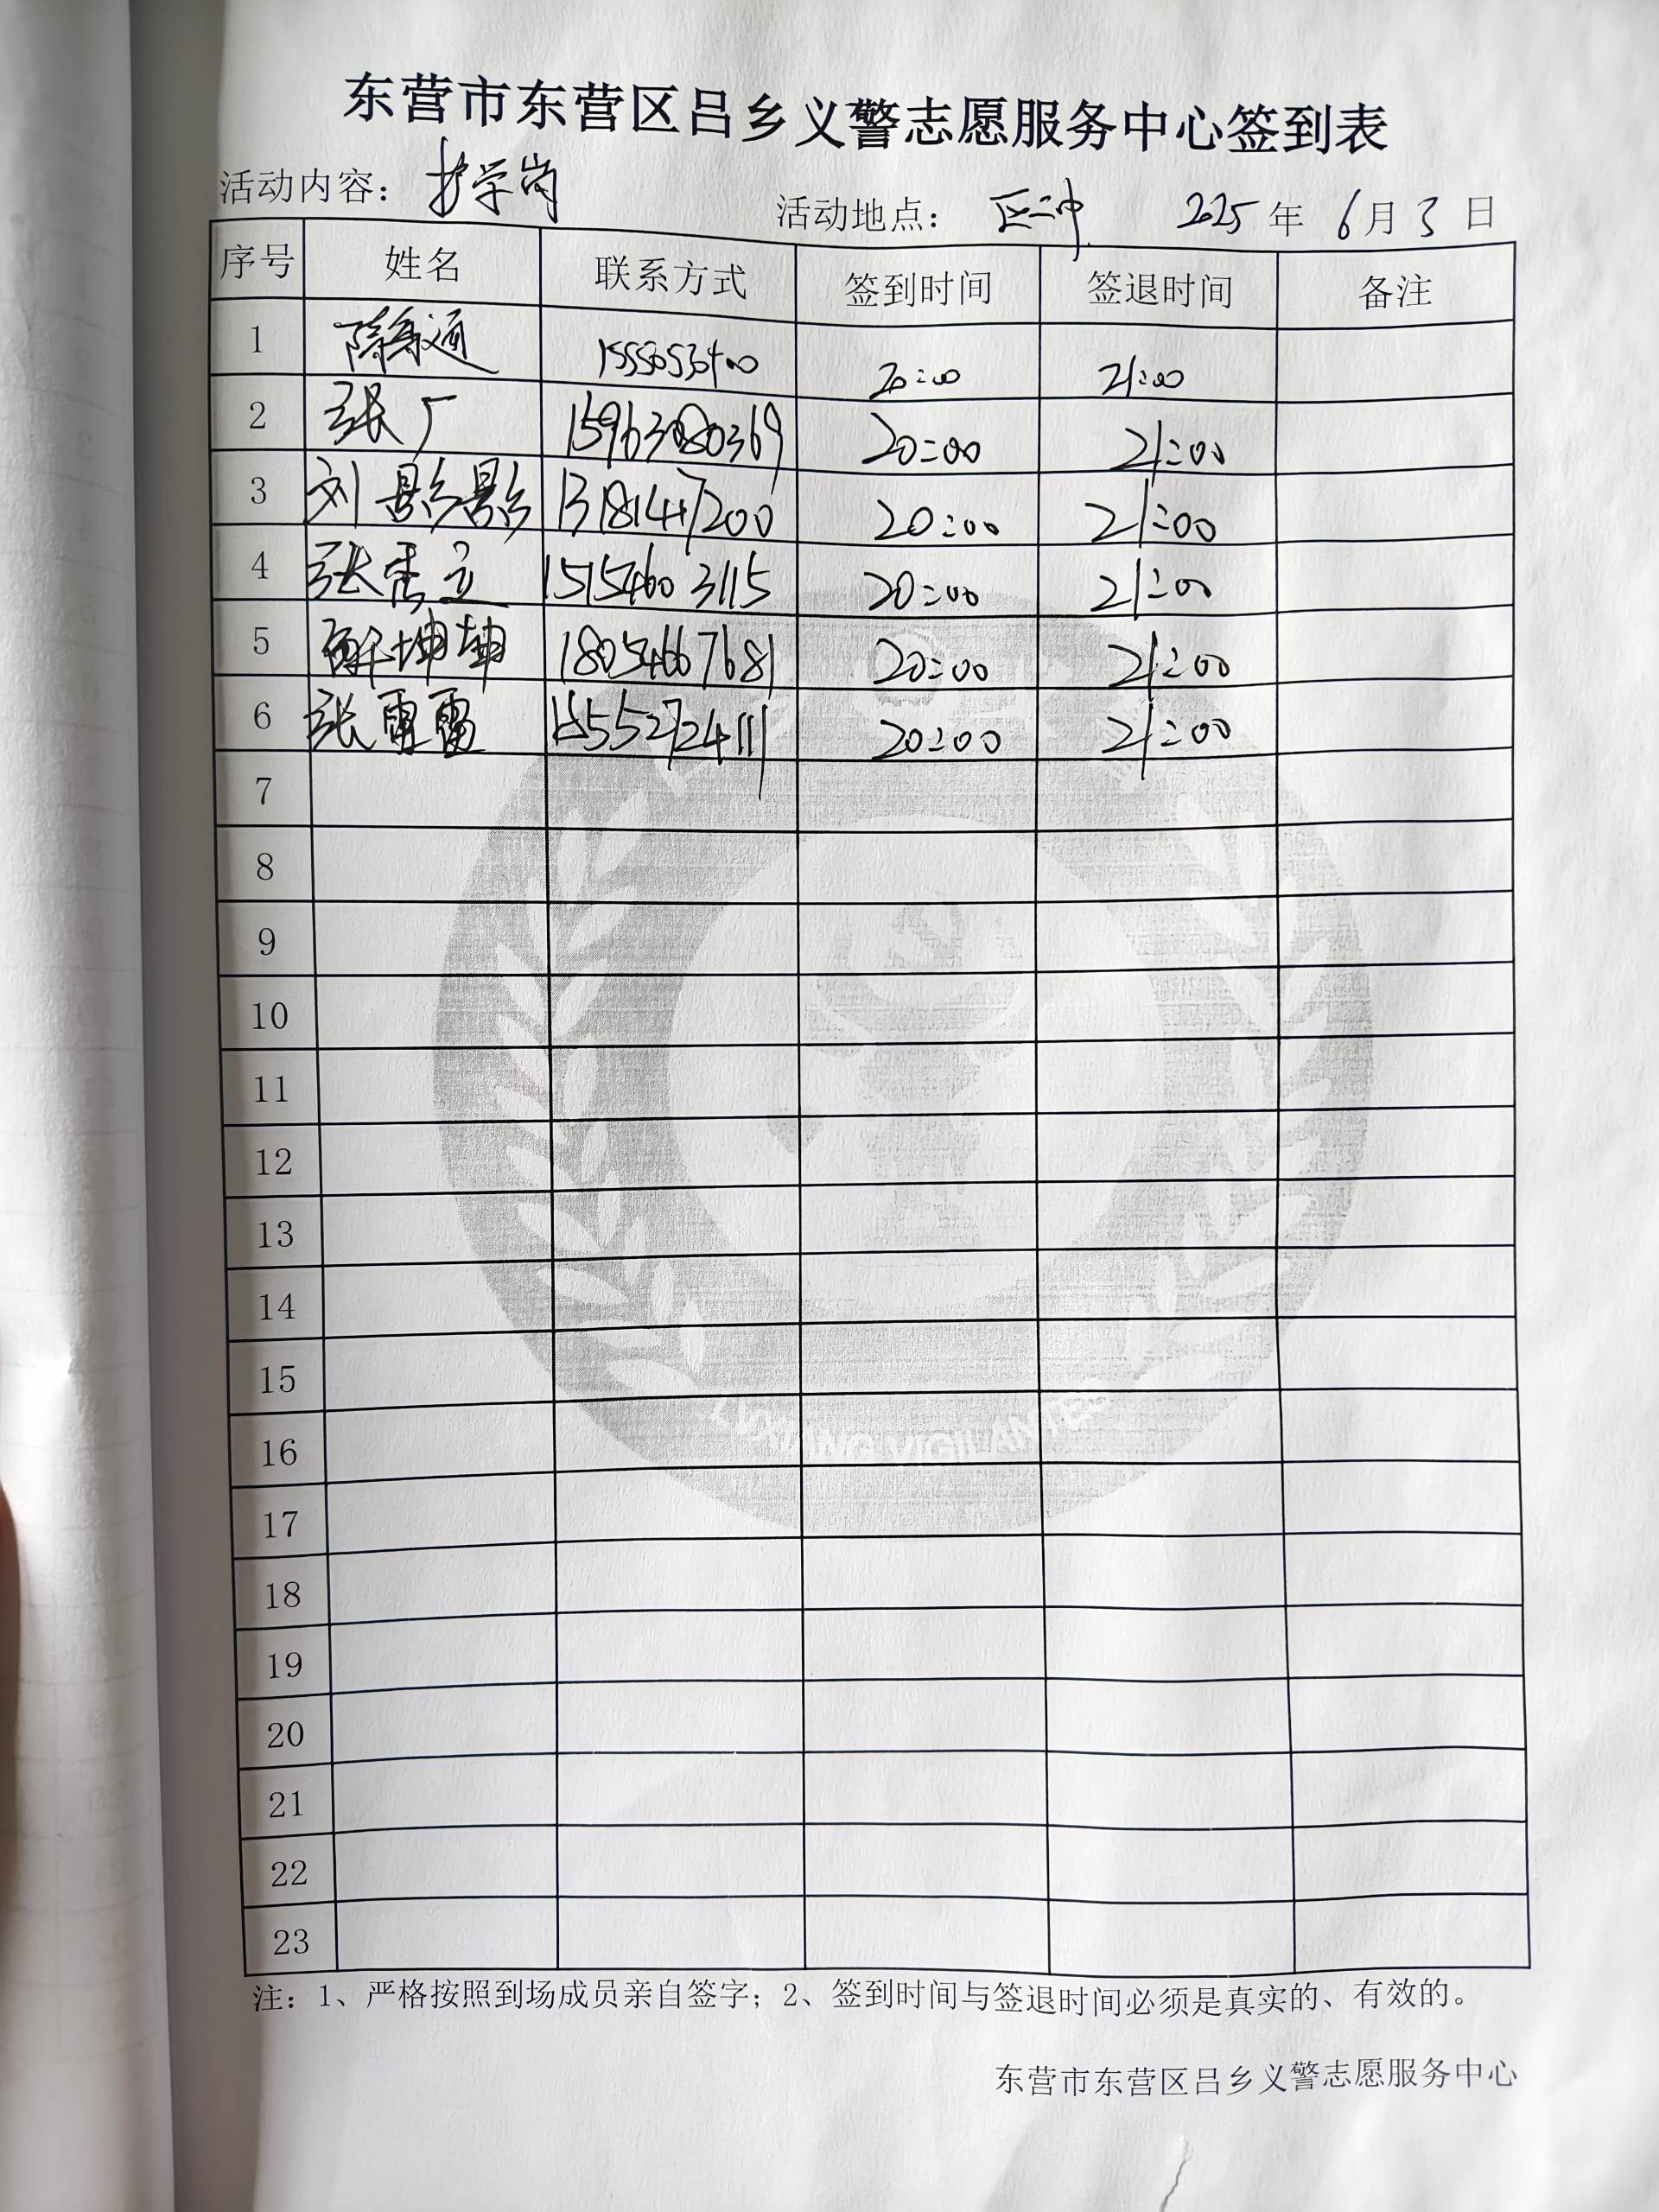 东营市东营区吕乡义警志愿服务中心签到表
活动内容：护学岗 活动地点：区二中 2025年6月3日
序号 姓名 联系方式 签到时间 签退时间 备注
1 20:00 21:00
2 张广 15963080369 20:00 21:00
3 刘影影 20:00 21:00
4 张 立 15154603115 20:00 21:00
5 坤坤 18054667681 20:00 21:00
6 张雷雷 15552724111 20:00 21:00
7
8
9
10
11
12
13
14
15
16
17
18
19
20
21
22
23
LVXIANG VIGILANTES
注：1、严格按照到场成员亲自签字；2、签到时间与签退时间必须是真实的、有效的。
东营市东营区吕乡义警志愿服务中心